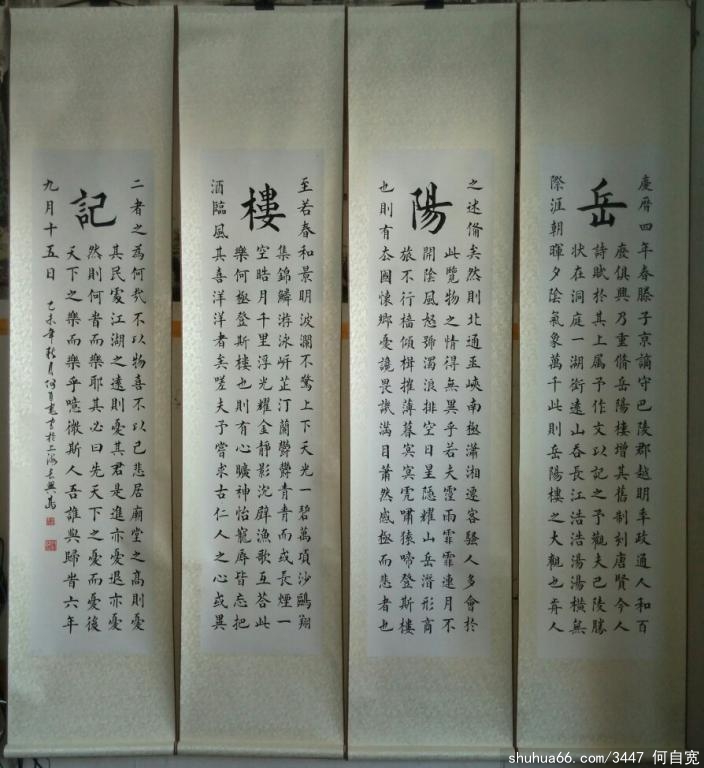 岳
慶曆四年春滕子京謫守巴陵郡越明年政通人和百
廢俱興乃重脩岳陽樓增其舊制刻唐賢今人
詩賦於其上屬予作文以記之予觀夫巴陵勝
狀在洞庭一湖銜遠山吞長江浩浩湯湯橫無
際涯朝暉夕陰氣象萬千此則岳陽樓之大觀也前人
陽
之述俻矣然則北通巫峽南極瀟湘遷客騷人多會於
此覽物之情得無異乎若夫霪雨霏霏連月不
開陰風怒號濁浪排空日星隱耀山岳潛形商
旅不行檣傾楫摧薄暮冥冥虎嘯猿啼登斯樓
也則有去國懷鄉憂讒畏譏滿目蕭然感極而悲者也
樓
至若春和景明波瀾不驚上下天光一碧萬頃沙鷗翔
集錦鱗游泳岍芷汀蘭鬱鬱青青而或長煙一
空皓月千里浮光耀金靜影沉璧漁歌互答此
樂何極登斯樓也則有心曠神怡寵辱皆忘把
酒臨風其喜洋洋者矣嗟夫予嘗求古仁人之心或異
記
二者之為何哉不以物喜不以己悲居廟堂之高則憂
其民處江湖之遠則憂其君是進亦憂退亦憂
然則何時而樂耶其必曰先天下之憂而憂後
天下之樂而樂乎噫微斯人吾誰與歸時六年
九月十五日 乙未年秋月何自寬書於上海長興島
shuhua66.com/3447 何自宽